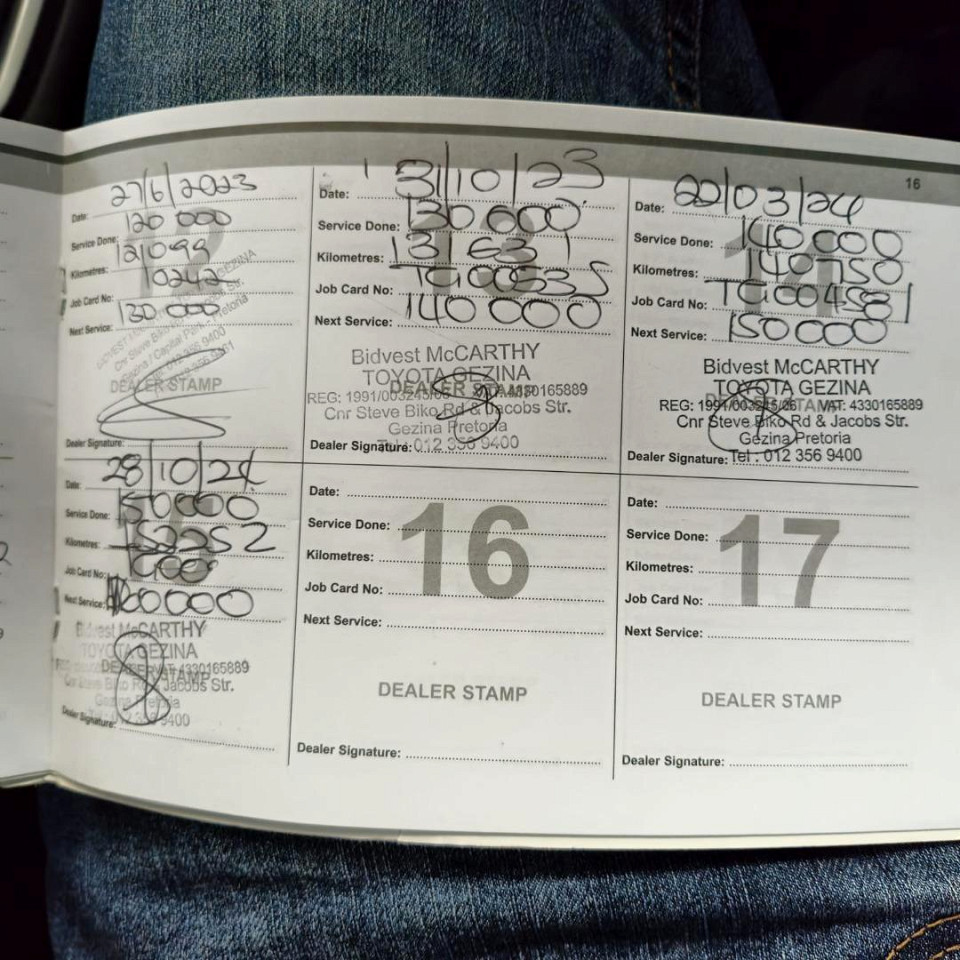 16
Date: 27/6/2023
Service Done: 120 000
Kilometres: 121099
Job Card No: 10242
Next Service: 130 000
DEALER STAMP
Dealer Signature:
Date: 31/10/23
Service Done: 130 000
Kilometres: 131631
Job Card No: TG00535
Next Service: 140 000
Bidvest McCARTHY
TOYOTA GEZINA
DEALER STAMP
REG: 1991/003245/06 VAT: 4330165889
Cnr Steve Biko Rd & Jacobs Str.
Gezina Pretoria
Tel : 012 356 9400
Dealer Signature:
14
Date: 22/03/24
Service Done: 140 000
Kilometres: 140750
Job Card No:
Next Service: 150000
Bidvest McCARTHY
TOYOTA GEZINA
DEALER STAMP
REG: 1991/003245/06 VAT: 4330165889
Cnr Steve Biko Rd & Jacobs Str.
Gezina Pretoria
Tel : 012 356 9400
Dealer Signature:
Date: 28/10/24
Service Done: 150000
Kilometres: 152252
Job Card No:
Next Service: 160000
Bidvest McCARTHY
TOYOTA GEZINA
DEALER STAMP
VAT: 4330165889
Cnr Steve Biko Rd & Jacobs Str.
Gezina Pretoria
012 356 9400
Dealer Signature:
16
Date:
Service Done:
Kilometres:
Job Card No:
Next Service:
DEALER STAMP
Dealer Signature:
17
Date:
Service Done:
Kilometres:
Job Card No:
Next Service:
DEALER STAMP
Dealer Signature: